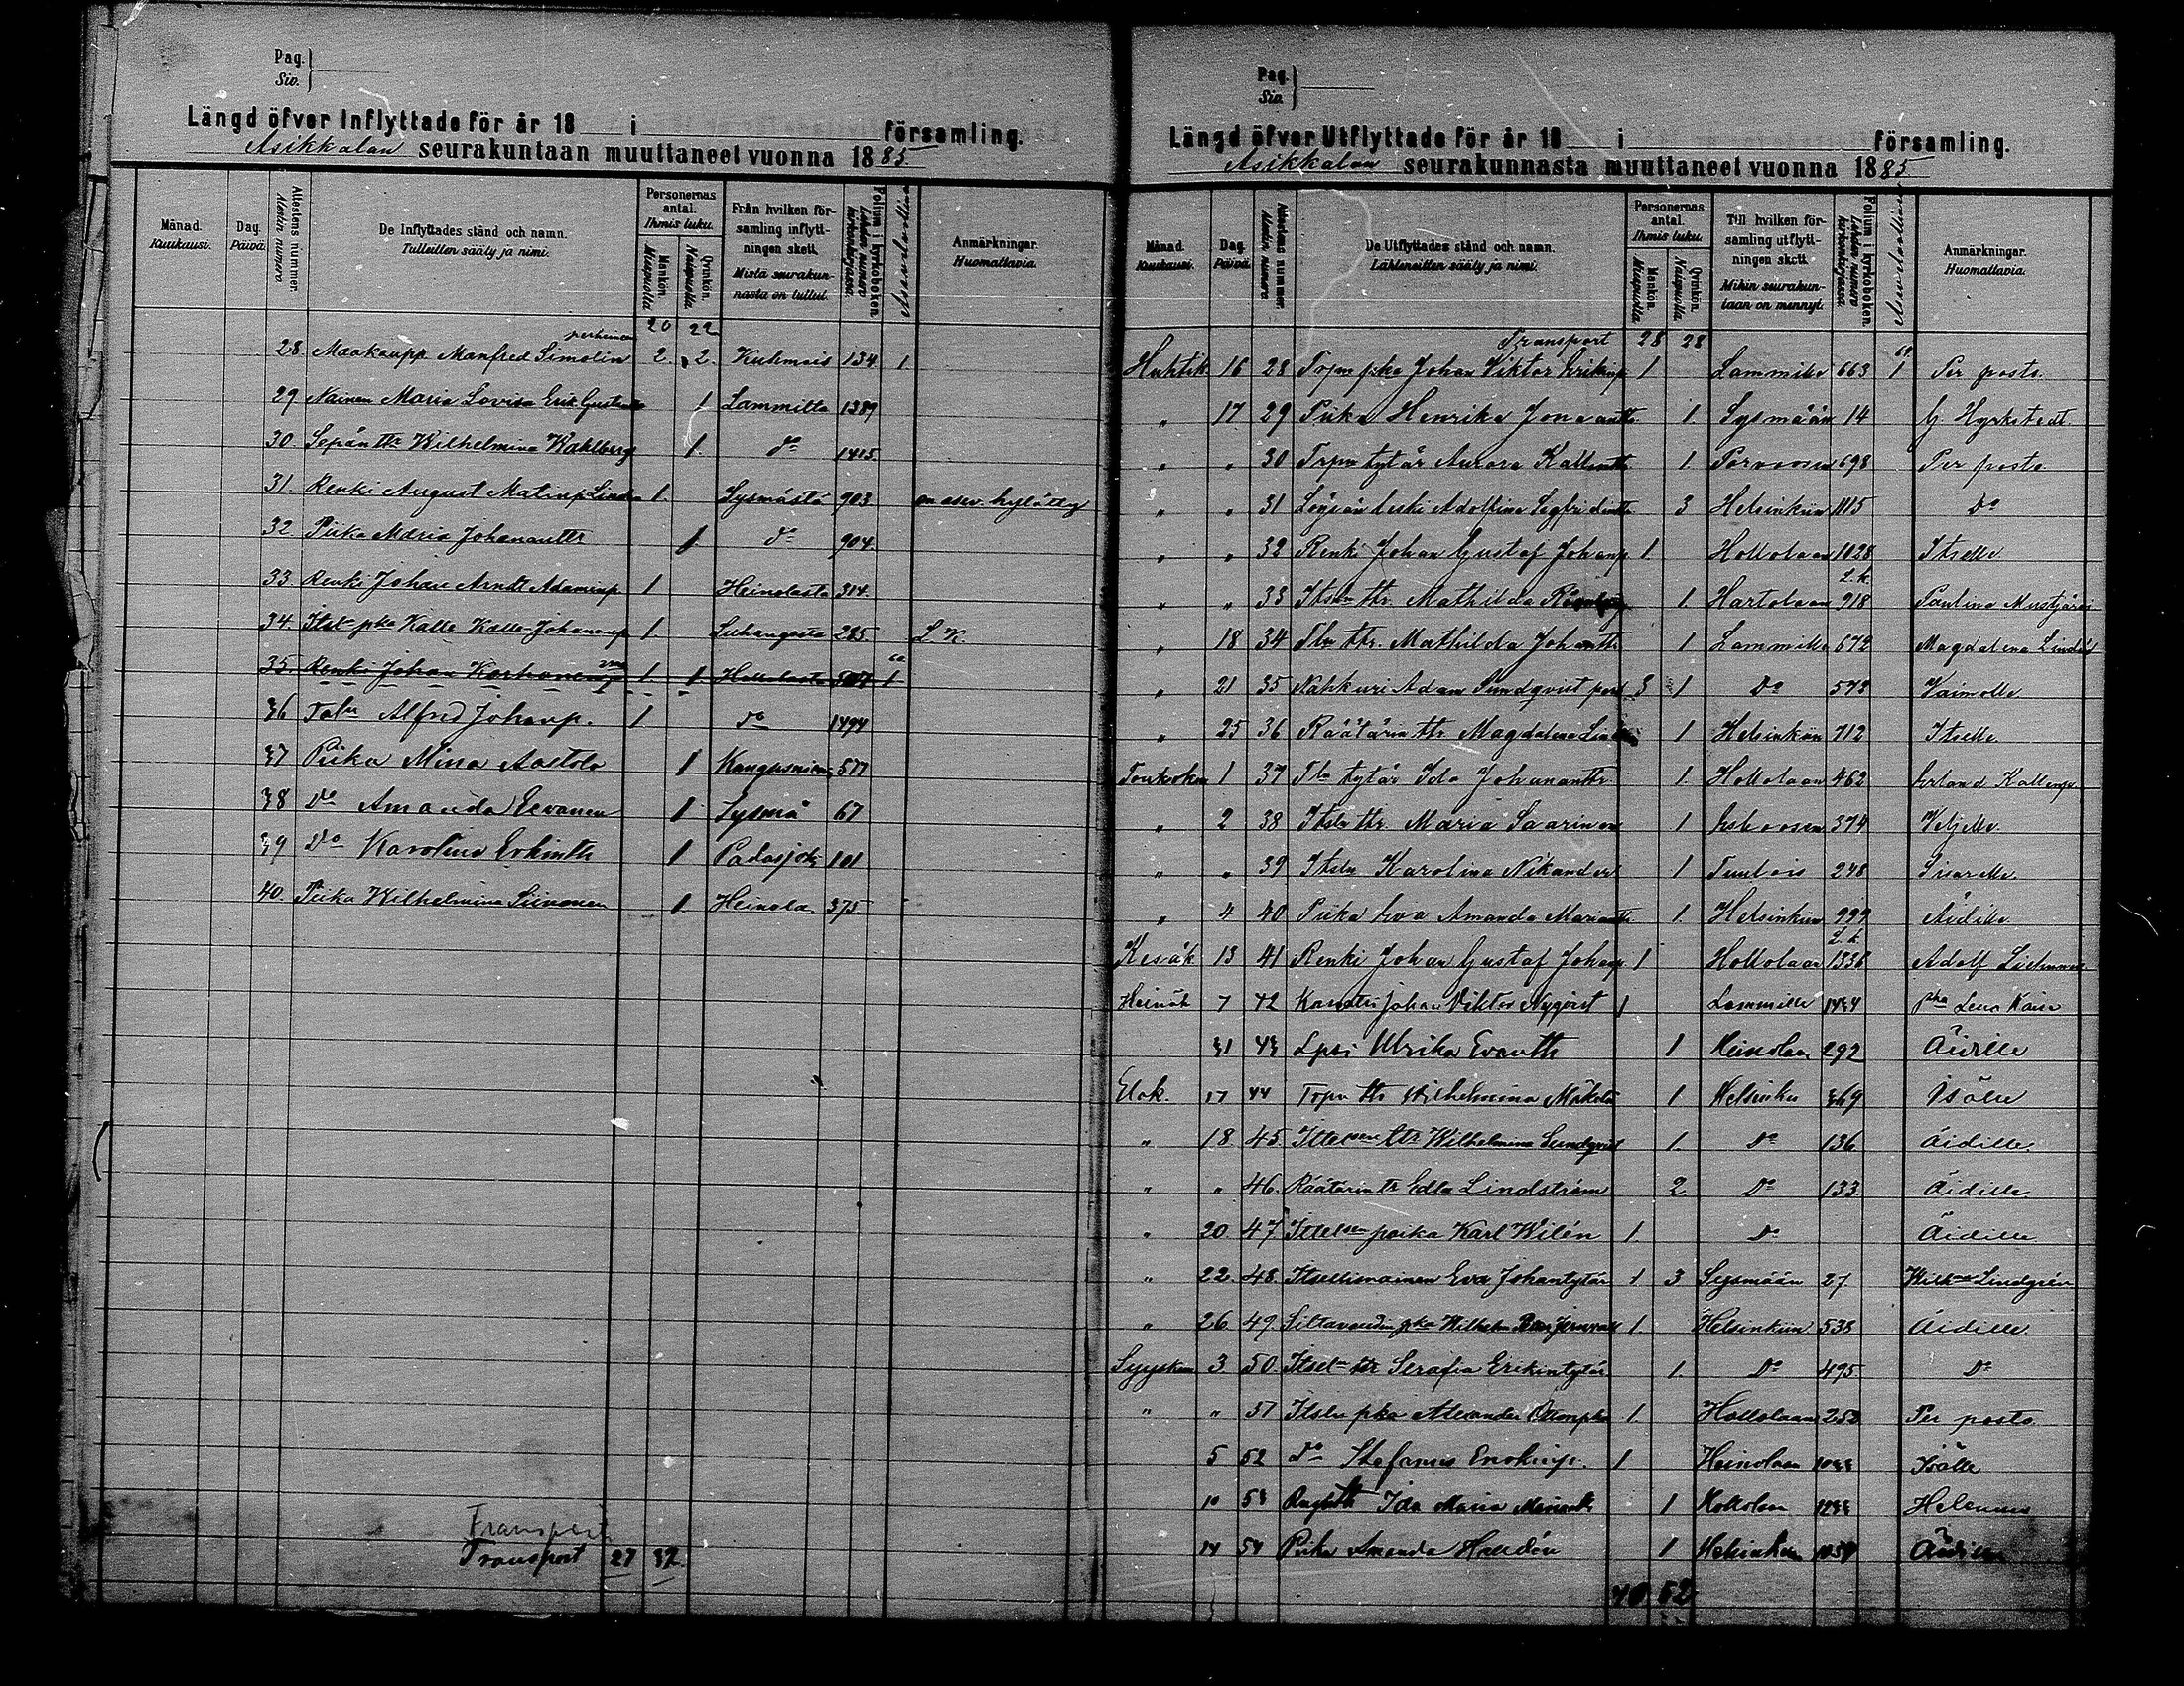 Pag.
Siv.
Längd öfver Inflyttade för år 18 i församling.
Asikkalan seurakuntaan muuttaneet vuonna 1885
Månad. Kuukausi.
Dag. Päivä.
Altestens nummer. Alestin numero
De Inflyttades stånd och namn. Tulleitten sääty ja nimi.
Personernas antal. Ihmis luku.
Mankön. Miespuolia
Qvinkön. Naispuolia
Från hvilken församling inflyttningen skett. Mista seurakunnasta on tullut.
Folium i kyrkoboken. Lehden numero kirkonkirjassa.
Asevelvollinen
Anmärkningar. Huomattavia.
20 22
28 Maakaupp Manfred Simolin perheineen 2. 2. Kuhmois 134 1
29 Nainen Maria Lovisa Erik Gustaf 1 Lammilta 1389
30. Sepän ttr Wilhelmina Wahlberg 1. Do 1415
31. Renki August Matinp Linden 1. Sysmästä 903 on asev. hylätty
32. Piika Maria Johanantr 1 Do 904.
33. Renki Johan Arndt Adaminp 1 Heinolasta 314.
34. Itsl pka Kalle Kalle-Johananp 1 Luhangasta 285 L K.
35. Renki Johan Korhonen 1 1. Hollolasta 507 1
36 Taln Alfred Johanp. 1 Do 1494
37 Piika Miina Aatolo 1 Kangasniemi 577
38 Do Amanda Eevanen 1 Sysmä 67
39 Do Karolina Erkintr 1 Padasjoki 101
40. Piika Wilhelmina Siinonen 1. Heinola 375.
Transport
Transport 27 32
Pag.
Siv.
Längd öfver Utflyttade för år 18 i församling.
Asikkalan seurakunnasta muuttaneet vuonna 1885
Månad. Kuukausi.
Dag. Päivä.
Altestens nummer. Alestin numero
De Utflyttades stånd och namn. Lähteneitten sääty ja nimi.
Personernas antal. Ihmis luku.
Mankön. Miespuolia
Qvinkön. Naispuolia
Till hvilken församling utflyttningen skett. Mihin seurakuntaan on mennyt.
Folium i kyrkoboken. Lehden numero kirkonkirjassa.
Asevelvollinen
Anmärkningar. Huomattavia.
Transport 28 28
Huhtik. 16 28 Torpn pka Johan Viktor Erikinp 1 Lammille 663 1 Per posto.
" 17. 29 Piika Henrika Jonaantr 1. Sysmään 14 G Hyrkstedt.
" " 30 Torpn tytär Aurora Kallentr 1. Porvoosen 698 Per posto
" " 31 Löysän leski Adolfina Segfridintr 3 Helsinkiin 1115 Do
" " 32 Renki Johan Gustaf Johanp 1. Hollolaan 1028 Itselle
" " 33 Itsln ttr. Mathilda 1. Hartolaan 918 Paulina Mustjärvi
" 18 34 Tln ttr. Mathilda Johantr 1 Lammille 672 Magdalena Lindel
" 21 35 Nahkuri Adam Sundqvist perh 3 1 Do 573 Vaimolle
" 25 36 Räätärin ttr Magdalena 1 Helsinkiin 712 Itselle
Toukokuu 1 37 Tln tytär Ida Johanantr 1. Hollolaan 462 Erland Kallenp.
" 2 38 Itsln ttr. Maria Saarinen 1 374 Veljelle.
" " 39 Itsln Karolina Nikander 1 Tuulois 248 Sisarelle.
" 4 40 Piika Eva Amanda 1. Helsinkiin 999 Äidille.
Kesäk 13 41 Renki Johan Gustaf Johanp 1 Hollolaan 1336 Adolf
Heinäk 7 42 Johan Viktor Nyqvist 1 Lammille 1434 pka Lena Kaisa
31 43 Lpsi Ulrika Evantr 1 Heinolaan 292 Äidille
Elok. 17 44 Torpn ttr Wilhelmina Mäkelä 1 Helsinkiin 369 Isälle
" 18. 45. Ittelsen ttr Wilhelmina Sundqvist 1. Do 136 Äidille.
" " 46. Räätärin tr Edla Lindström 2 Do 133 Äidille
" 20. 47. Ittelsen poika Karl Wilén 1. Do Äidille
" 22. 48. Itsellisnainen Eva Johantytär 1 3 Sysmään 27 Lindgrén
" 26. 49. pka Wilhelm 1. Helsinkiin 538 Äidille
Syyskuu 3. 50. Itsel ttr Serafia Erikintytär 1. Do 495 Do
" " 51 Itsln pka Alexander Ottonpka 1. Hollolaan 252 Per posto.
5 52 Do Stefanus Enokinp. 1 Heinolaan 1033 Isälle
10 53 Ida Maria 1 Hollolaan 1233
14 54 Piika Amanda Halldén 1 Helsinkiin Äidille
40 52